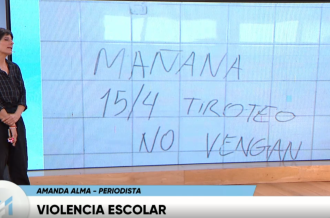 MAÑANA
15/4 TIROTEO
NO VENGAN
AMANDA ALMA - PERIODISTA
VIOLENCIA ESCOLAR